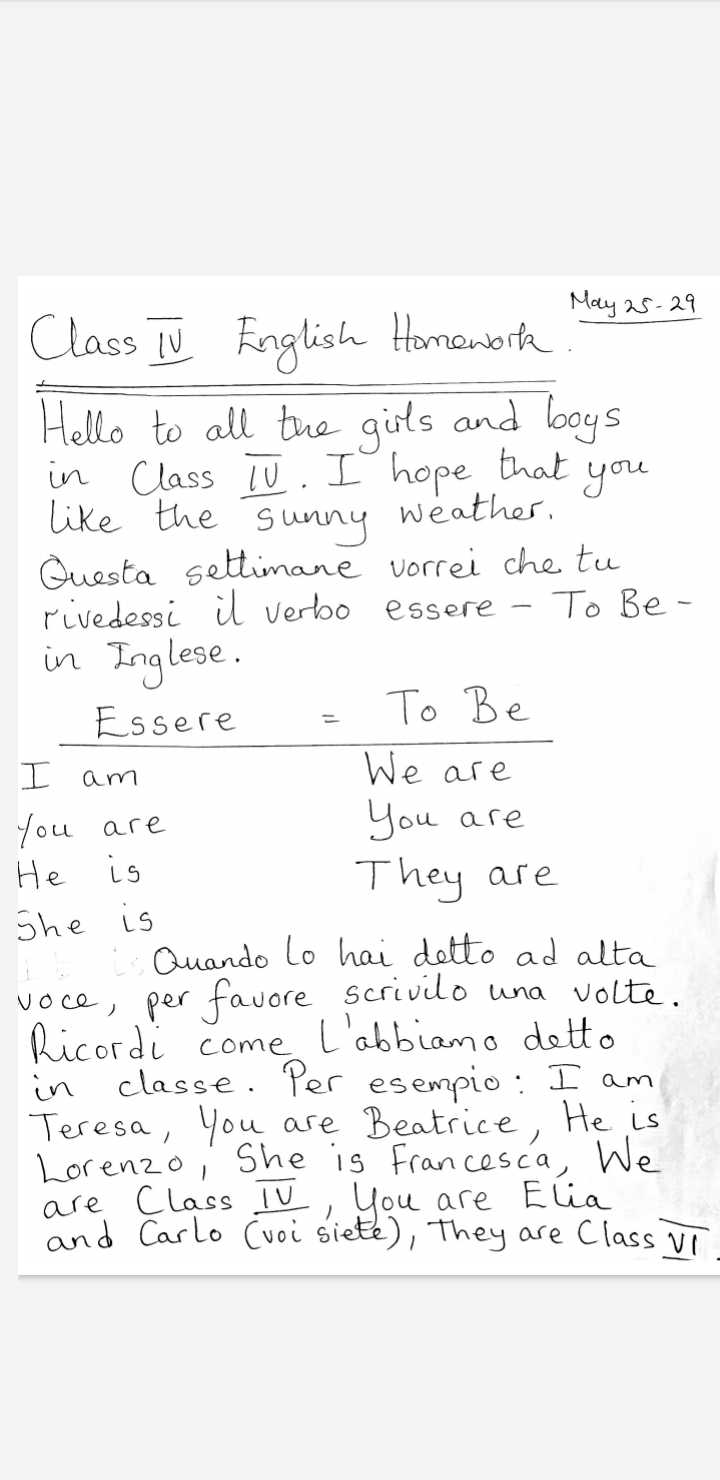 May 25-29
Class IV English Homework.
Hello to all the girls and boys
in Class IV. I hope that you
like the sunny weather.
Questa settimane vorrei che tu
rivedessi il verbo essere - To Be -
in Inglese.
Essere = To Be
I am We are
You are You are
He is They are
She is
It is Quando lo hai detto ad alta
voce, per favore scrivilo una volte.
Ricordi come l'abbiamo detto
in classe. Per esempio: I am
Teresa, You are Beatrice, He is
Lorenzo, She is Francesca, We
are Class IV, You are Elia
and Carlo (voi siete), They are Class VI.